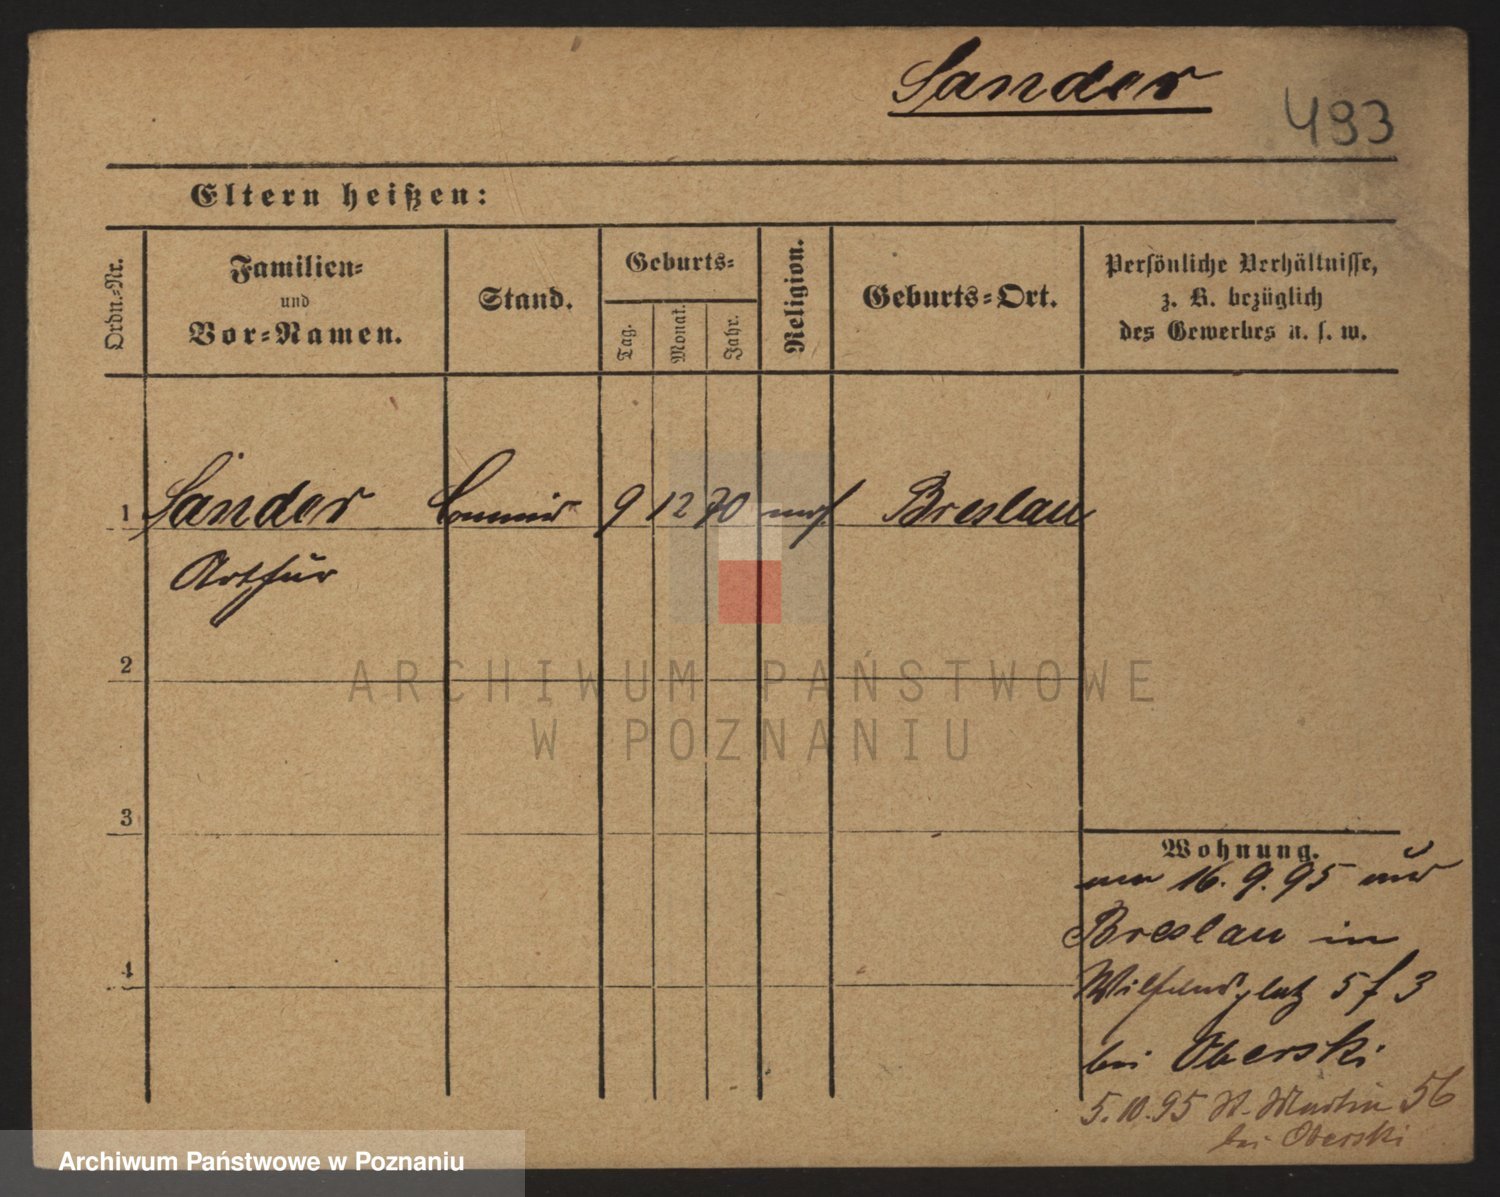 Sander
493
Eltern heißen:
Ordn.-Nr.
Familien-
und
Vor-Namen.
Stand.
Geburts-
Tag.
Monat.
Jahr.
Religion.
Geburts-Ort.
Persönliche Verhältnisse,
z. B. bezüglich
des Gewerbes u. s. w.
1 Sander 9 12 70 Breslau
Arthur
2
3
4
Wohnung.
16. 9. 95
Breslau in
5 3
bei Oberski
5. 10. 95 St. Martin 56
bei Oberski
ARCHIWUM PAŃSTWOWE
W POZNANIU
Archiwum Państwowe w Poznaniu